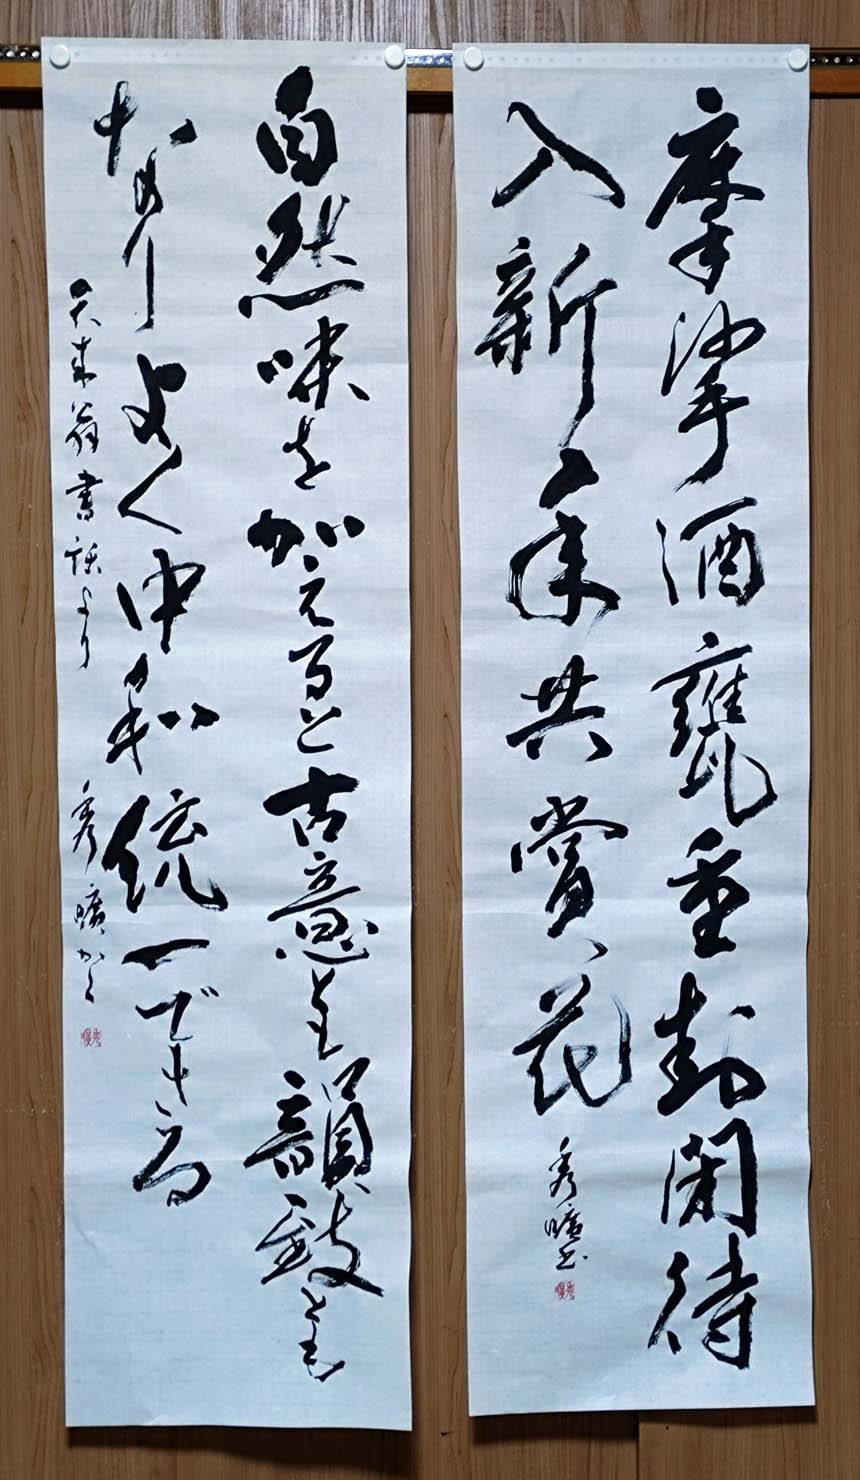 摩挲酒甕重封閉待
入新年共賞花
秀曠書
自然味を加えると古意も韻致とも
よく中和統一できる
天来翁書話より 秀曠かく